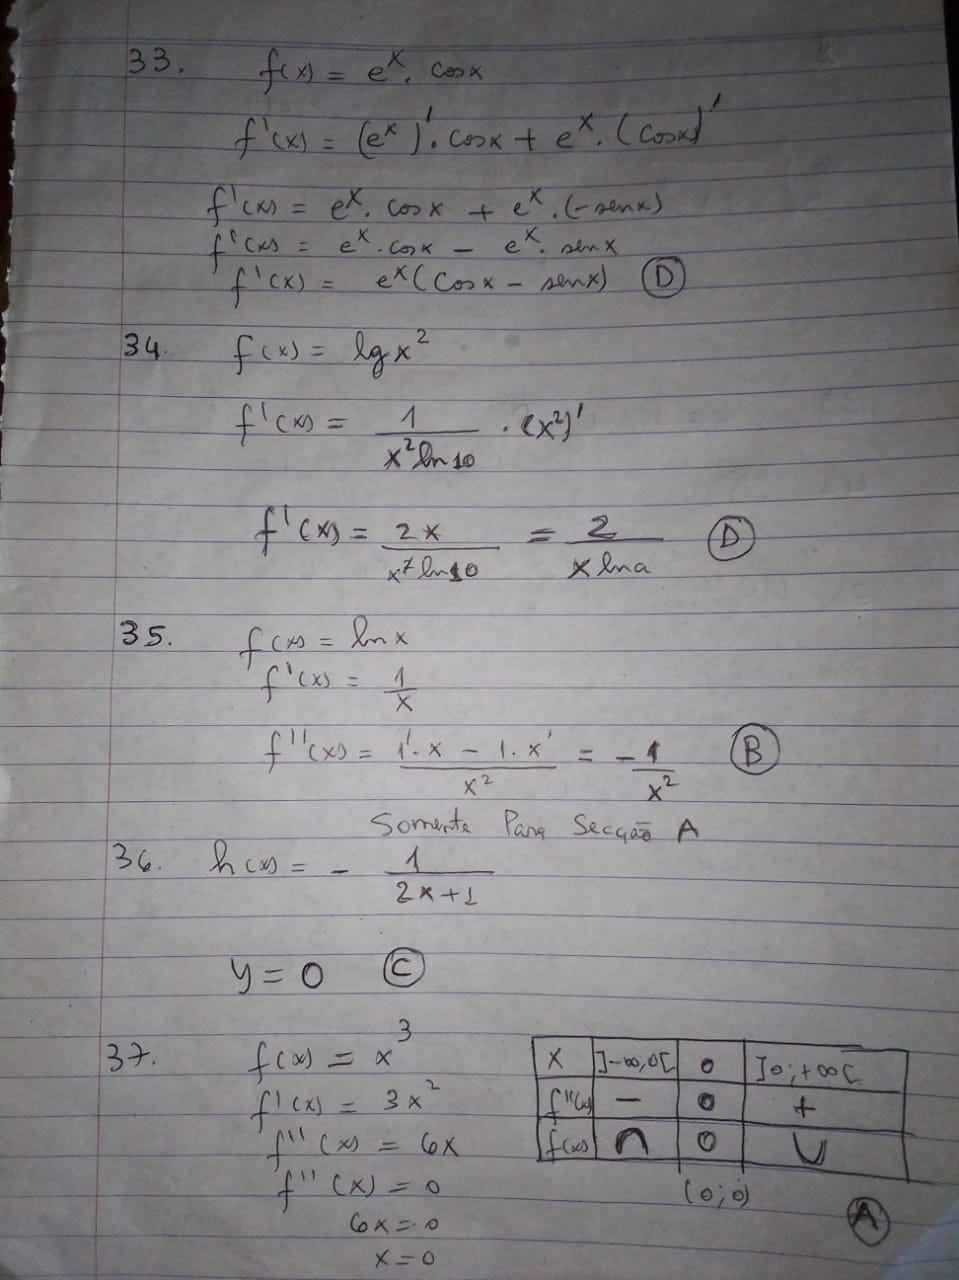 33. f(x) = eˣ. cosx
f'(x) = (eˣ)'. cosx + eˣ. (cosx)'
f'(x) = eˣ. cosx + eˣ. (-senx)
f'(x) = eˣ. cosx - eˣ. senx
f'(x) = eˣ(cosx - senx) D
34. f(x) = lgx²
f'(x) = 1/(x² ln10) . (x²)'
f'(x) = 2x/(x² ln10) = 2/(x lna) D
35. f(x) = lnx
f'(x) = 1/x
f''(x) = (1'. x - 1. x')/x² = -1/x² B
Somente Para Secção A
36. h(x) = - 1/(2x+1)
y = 0 C
37. f(x) = x³
f'(x) = 3x²
f''(x) = 6x
f''(x) = 0
6x = 0
x = 0
x ]-∞;0[ 0 ]0;+∞[
f''(x) - 0 + 
f(x) ∩ 0 ∪
(0;0)
A